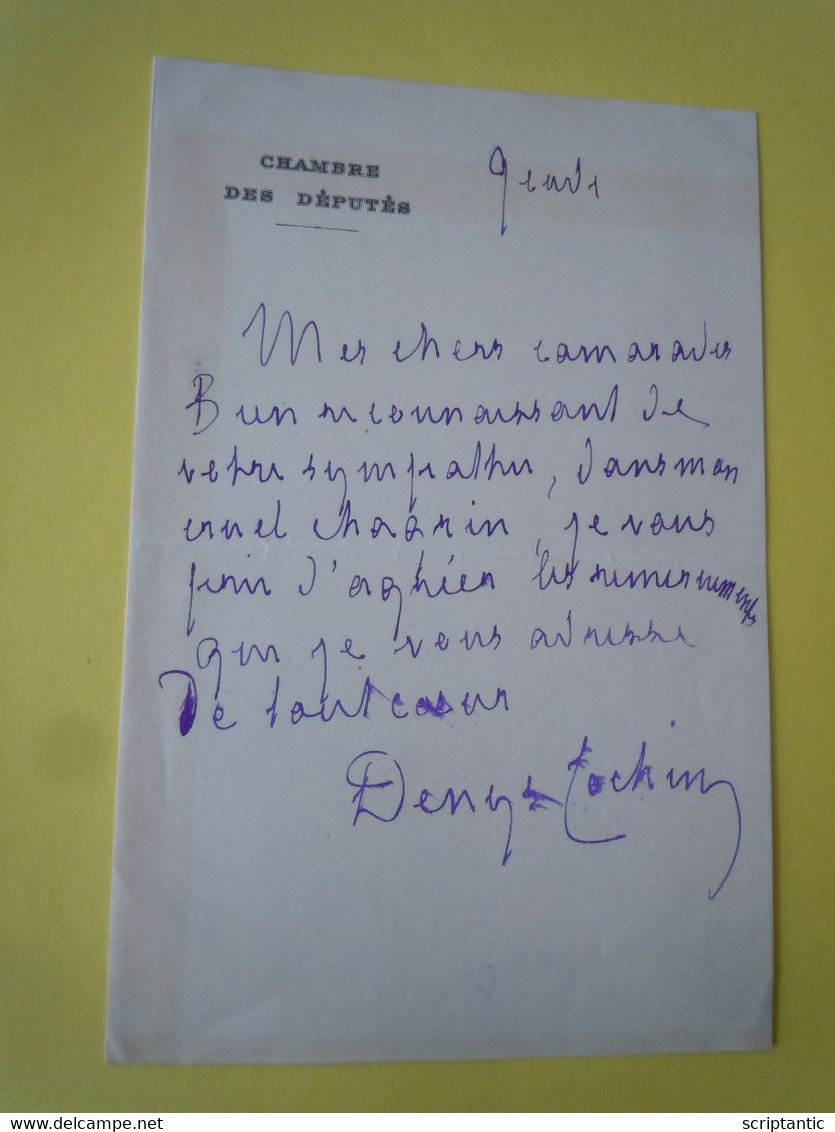 CHAMBRE
DES DÉPUTÉS
jeudi
Mes chers camarades
Bien reconnaissant de
votre sympathie, dans mon
cruel chagrin, je vous
prie d'agréer les remerciements
que je vous adresse
De tout cœur
Denys Cochin
www.delcampe.net
scriptantic